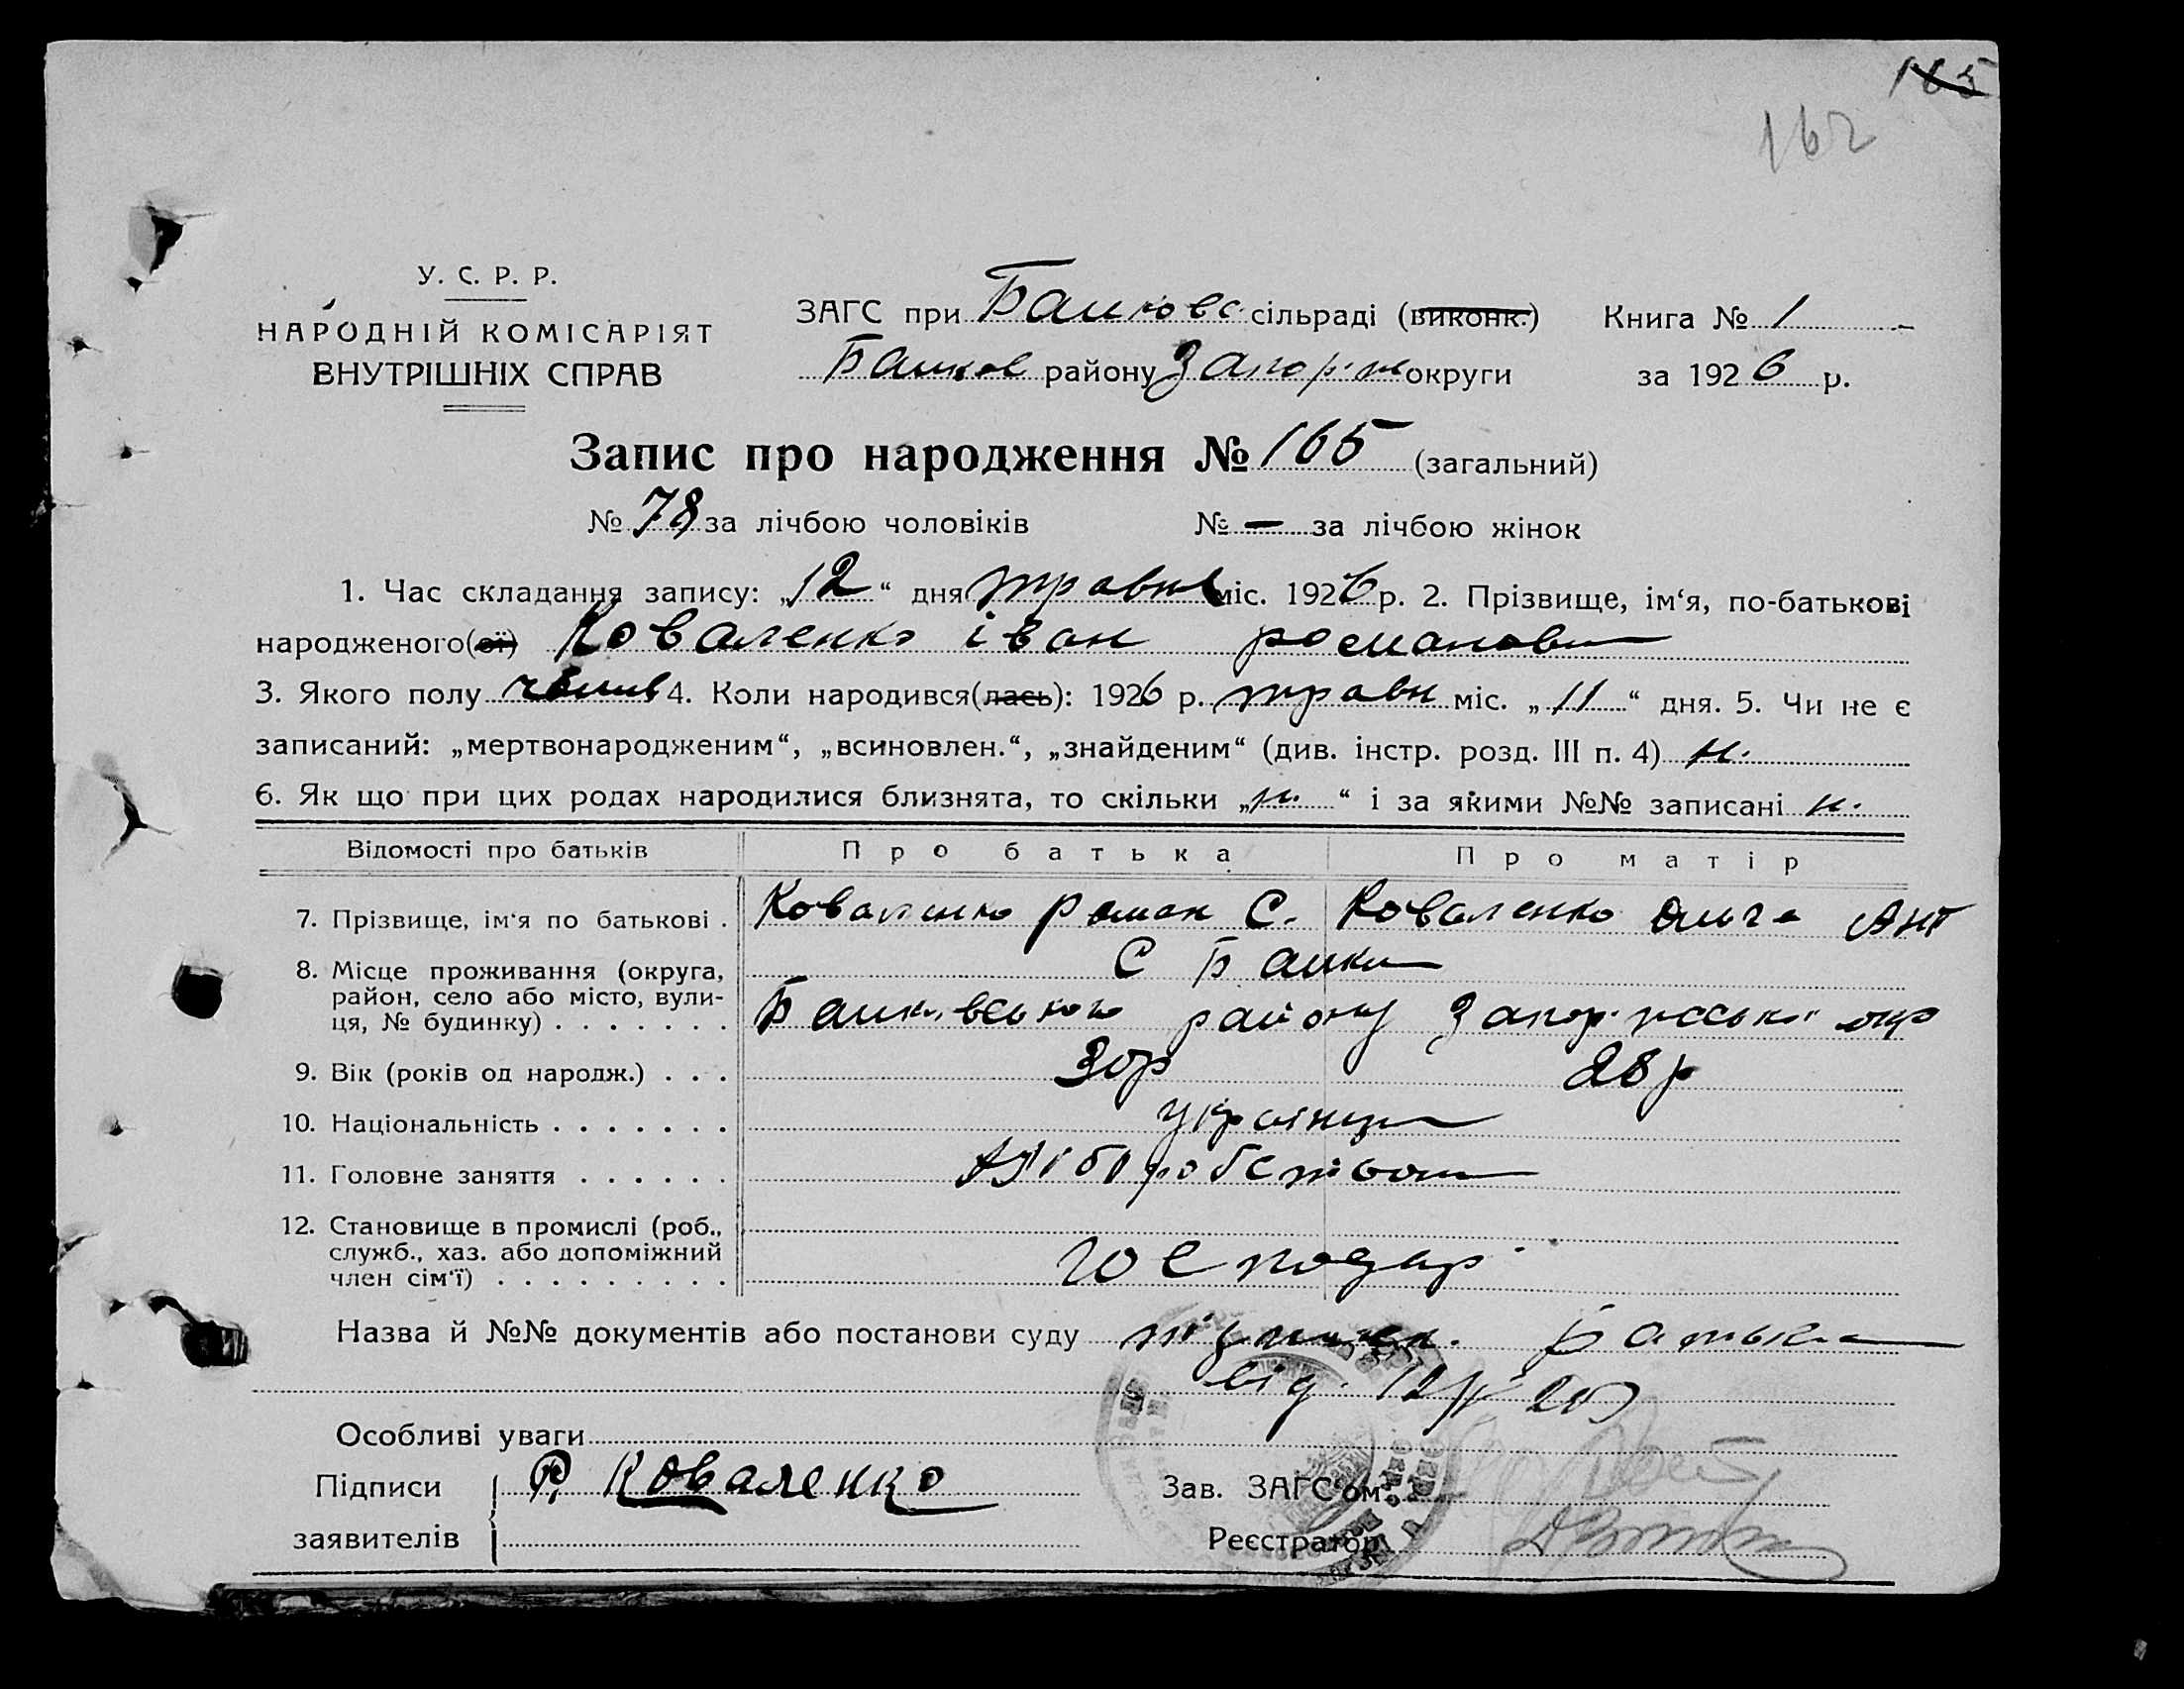 165
162
У. С. Р. Р.
НАРОДНІЙ КОМІСАРІЯТ
ВНУТРІШНІХ СПРАВ
ЗАГС при Балковс сільраді (виконк.) Книга № 1
Балков району Запоріж округи за 1926 р.
Запис про народження № 165 (загальний)
№ 78 за лічбою чоловіків № — за лічбою жінок
1. Час складання запису: „12“ дня травня міс. 1926 р. 2. Прізвище, ім‘я, по-батькові
народженого(ої) Коваленко іван романович
3. Якого полу 4. Коли народився(лась): 1926 р. травн міс. „11“ дня. 5. Чи не є
записаний: „мертвонародженим“, „всиновлен.“, „знайденим“ (див. інстр. розд. III п. 4) н.
6. Як що при цих родах народилися близнята, то скільки „н.“ і за якими №№ записані н.
Відомості про батьків Про батька Про матір
7. Прізвище, ім‘я по батькові . Коваленко Роман С. Коваленко Ольга Ант
8. Місце проживання (округа, С Балки
район, село або місто, вули-
ця, № будинку) . . . . . . . Балківського району Запоріжської окр
9. Вік (років од народж.) . . . 30р 28р
10. Національність . . . . . . . українці
11. Головне заняття . . . . . . хліборобством
12. Становище в промислі (роб.,
служб., хаз. або допоміжний
член сім‘ї) . . . . . . . . . господар
Назва й №№ документів або постанови суду батька
від. 12/V
Особливі уваги
Підписи Р. Коваленко Зав. ЗАГС‘ом
заявителів Реєстратор